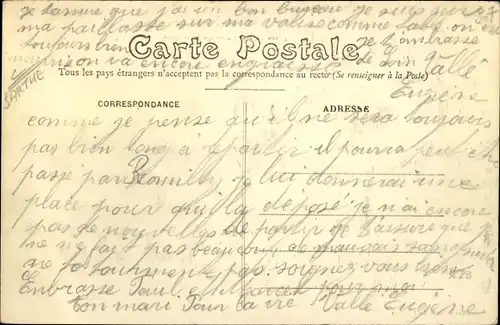 je t'assure que j'ai un bon bureau je suis sur
ma paillasse sur ma valise comme table on est
toujours bien
Carte Postale
je t'embrasse
de loin Vallé
Eugène
va encore
Tous les pays étrangers n'acceptent pas la correspondance au recto (Se renseigner à la Poste)
SARTHE
CORRESPONDANCE
ADRESSE
comme je pense qu'il ne sera toujours
pas bien long a repartir il pourra peut
passe par Romilly je lui donnerai une
place pour qu'il la dépose je n'ai encore
pas de nouvelles de partir je t'assure que je
ne me fait pas beaucoup de mauvais sang
ne te tourmente pas soignez vous bien
Embrasse Paul et pour moi
Ton mari Pour la vie Vallé Eugène